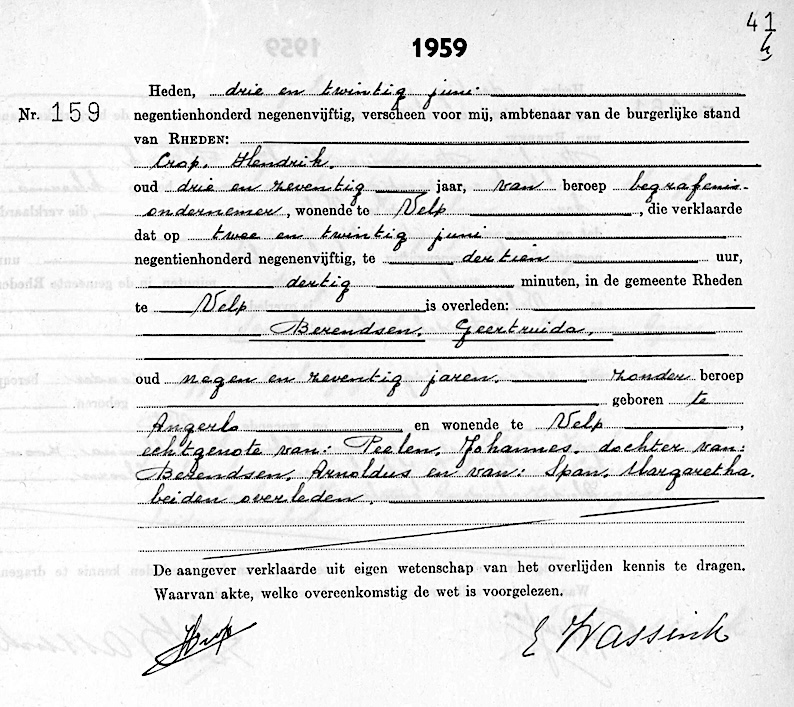 41
h
1959
Heden, drie en twintig juni
Nr. 159 negentienhonderd negenenvijftig, verscheen voor mij, ambtenaar van de burgerlijke stand
van RHEDEN:
Crop, Hendrik,
oud drie en zeventig jaar, van beroep begrafenis-
ondernemer, wonende te Velp, die verklaarde
dat op twee en twintig juni
negentienhonderd negenenvijftig, te dertien uur,
dertig minuten, in de gemeente Rheden
te Velp is overleden:
Berendsen, Geertruida,
oud negen en zeventig jaren, zonder beroep
geboren te
Angerlo en wonende te Velp,
echtgenote van: Peelen, Johannes, dochter van:
Berendsen, Arnoldus en van: Span, Margaretha,
beiden overleden,
De aangever verklaarde uit eigen wetenschap van het overlijden kennis te dragen.
Waarvan akte, welke overeenkomstig de wet is voorgelezen.
HCrop E Wassink